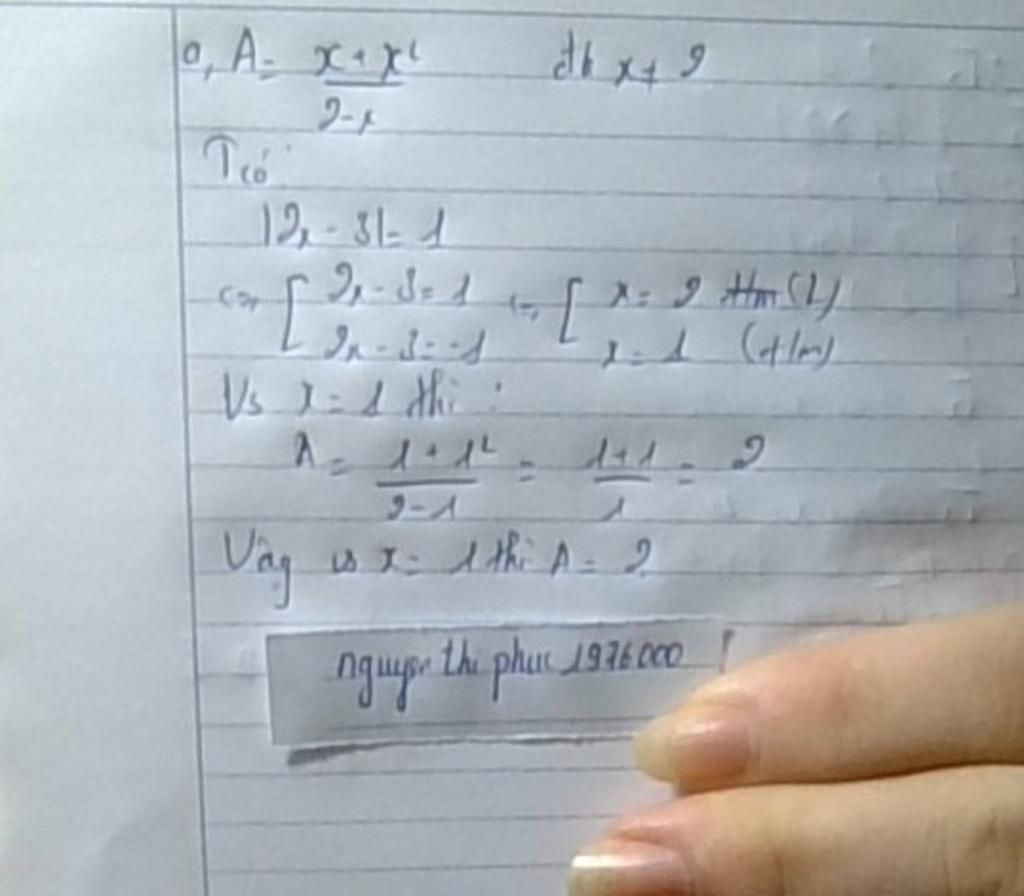 a, A = \frac{x + x²}{2-x} đk x ≠ 2
Tcó
|2x - 3| = 1
<=> [ 2x - 3 = 1 <=> [ x = 2 (L)
2x - 3 = -1 x = 1 (t/m)
Vs x = 1 thì :
A = \frac{1 + 1²}{2-1} = \frac{1+1}{1} = 2
Vậy vs x = 1 thì A = 2
nguyen thi phuc 1976000